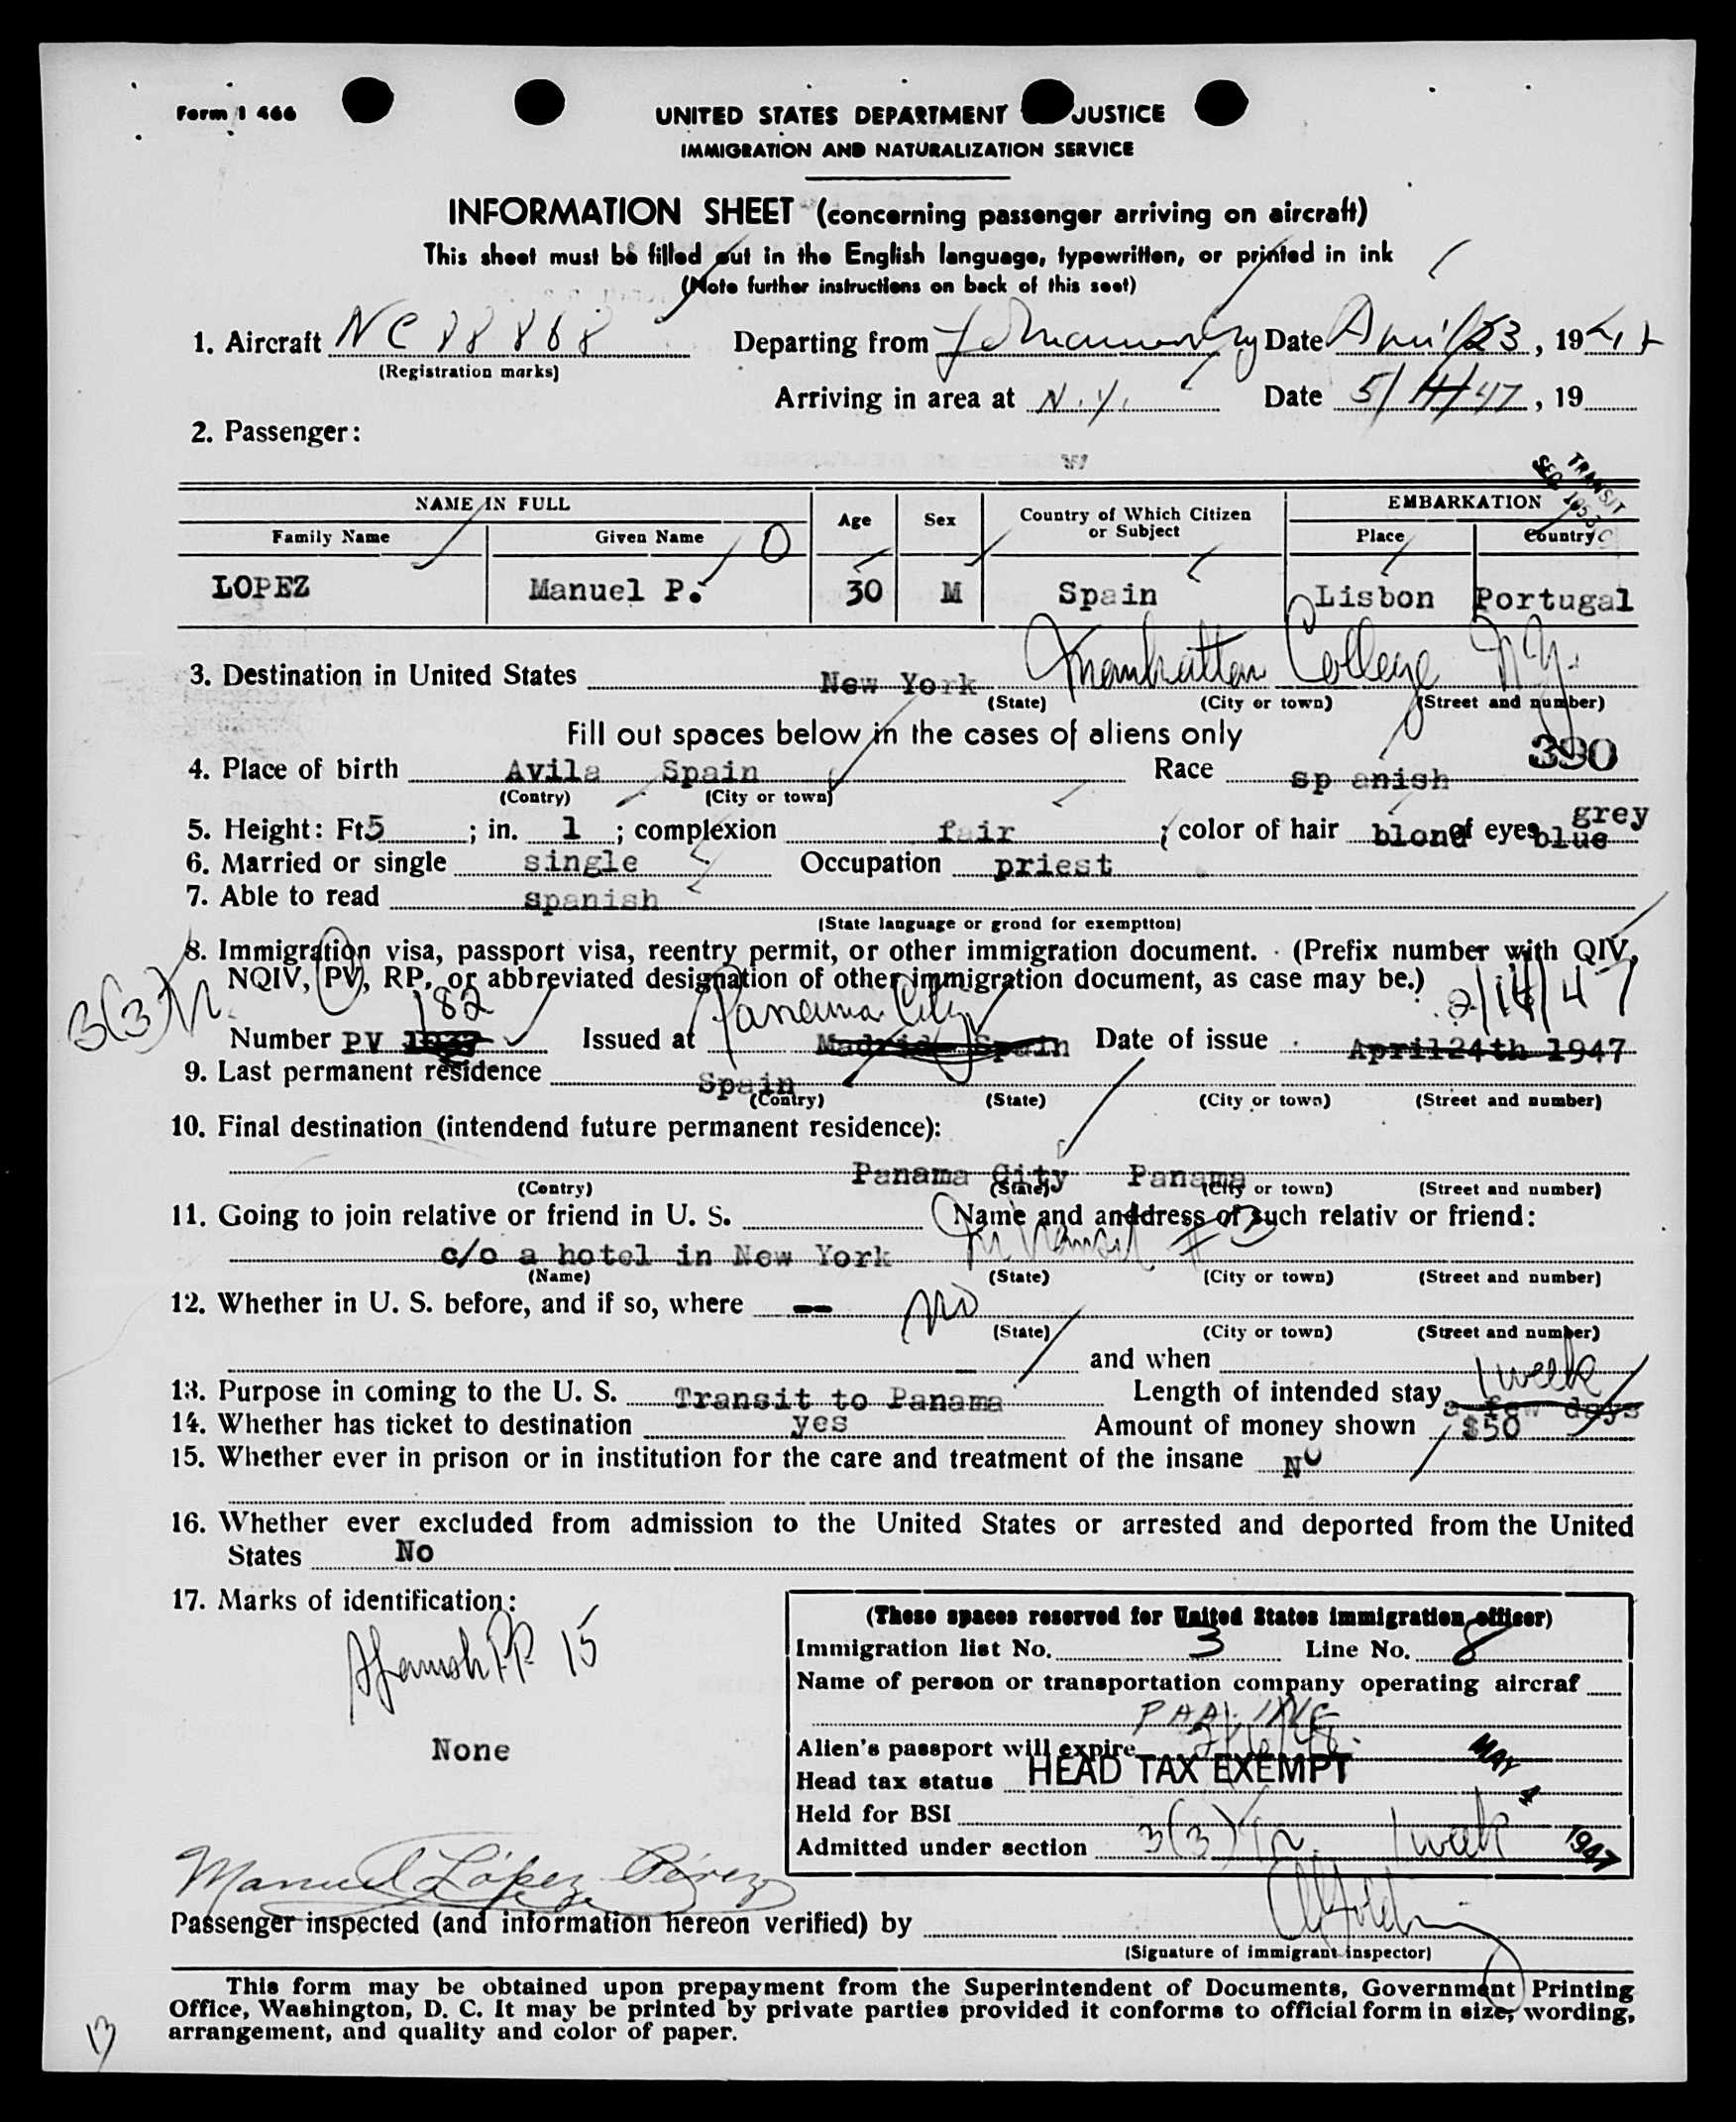 Form I 466
UNITED STATES DEPARTMENT JUSTICE
IMMIGRATION AND NATURALIZATION SERVICE
INFORMATION SHEET (concerning passenger arriving on aircraft)
This sheet must be filled out in the English language, typewritten, or printed in ink
(Note further instructions on back of this seet)
1. Aircraft NC 88868 Departing from Date April 23, 194
(Registration marks)
Arriving in area at N.Y. Date 5/4/47, 19
2. Passenger:
TRANSIT
SEQ 1953
NAME IN FULL Age Sex Country of Which Citizen or Subject EMBARKATION
Family Name Given Name Place Country
LOPEZ Manuel P. 30 M Spain Lisbon Portugal
3. Destination in United States New York Manhattan College N.Y.
(State) (City or town) (Street and number)
Fill out spaces below in the cases of aliens only
390
4. Place of birth Avila Spain Race sp anish
(Contry) (City or town)
grey
5. Height: Ft 5 ; in. 1 ; complexion fair ; color of hair blond of eyes blue
6. Married or single single Occupation priest
7. Able to read spanish
(State language or grond for exemptton)
8. Immigration visa, passport visa, reentry permit, or other immigration document. (Prefix number with QIV,
NQIV, PV, RP, or abbreviated designation of other immigration document, as case may be.)
182 Panama City 2/14/47
Number PV Issued at Madrid, Spain Date of issue April 24th 1947
9. Last permanent residence Spain
(Contry) (State) (City or town) (Street and number)
10. Final destination (intendend future permanent residence):
Panama City Panama
(Contry) (State) (City or town) (Street and number)
11. Going to join relative or friend in U. S. Name and anddress of such relativ or friend:
c/o a hotel in New York In transit
(Name) (State) (City or town) (Street and number)
12. Whether in U. S. before, and if so, where -- no
(State) (City or town) (Street and number)
and when
1 week
13. Purpose in coming to the U. S. Transit to Panama Length of intended stay a few days
14. Whether has ticket to destination yes Amount of money shown $50
15. Whether ever in prison or in institution for the care and treatment of the insane No
16. Whether ever excluded from admission to the United States or arrested and deported from the United
States No
17. Marks of identification:
Spanish PP 15
None
(These spaces reserved for United States immigration officer)
Immigration list No. 3 Line No. 8
Name of person or transportation company operating aircraf
PAA, INC
Alien's passport will expire
Head tax status HEAD TAX EXEMPT
MAY 4 1947
Held for BSI
Admitted under section 3(3) 1 week
Manuel López Pérez
Passenger inspected (and information hereon verified) by
(Signature of immigrant inspector)
This form may be obtained upon prepayment from the Superintendent of Documents, Government Printing
Office, Washington, D. C. It may be printed by private parties provided it conforms to official form in size, wording,
arrangement, and quality and color of paper.